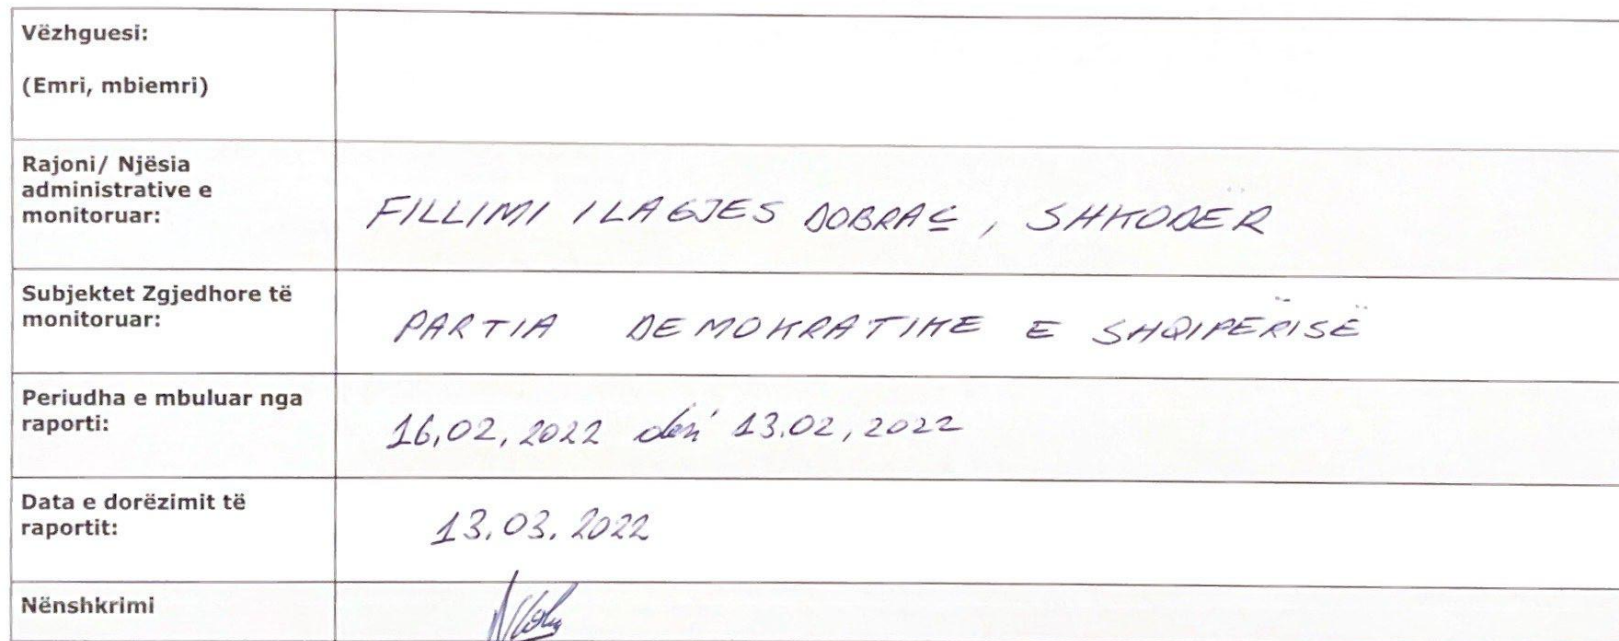 Vëzhguesi:
(Emri, mbiemri)
Rajoni/ Njësia
administrative e
monitoruar:
FILLIMI I LAGJES DOBRAÇ, SHKODËR
Subjektet Zgjedhore të
monitoruar:
PARTIA DEMOKRATIKE E SHQIPËRISË
Periudha e mbuluar nga
raporti:
16,02,2022 deri 13.02,2022
Data e dorëzimit të
raportit:
13.03.2022
Nënshkrimi